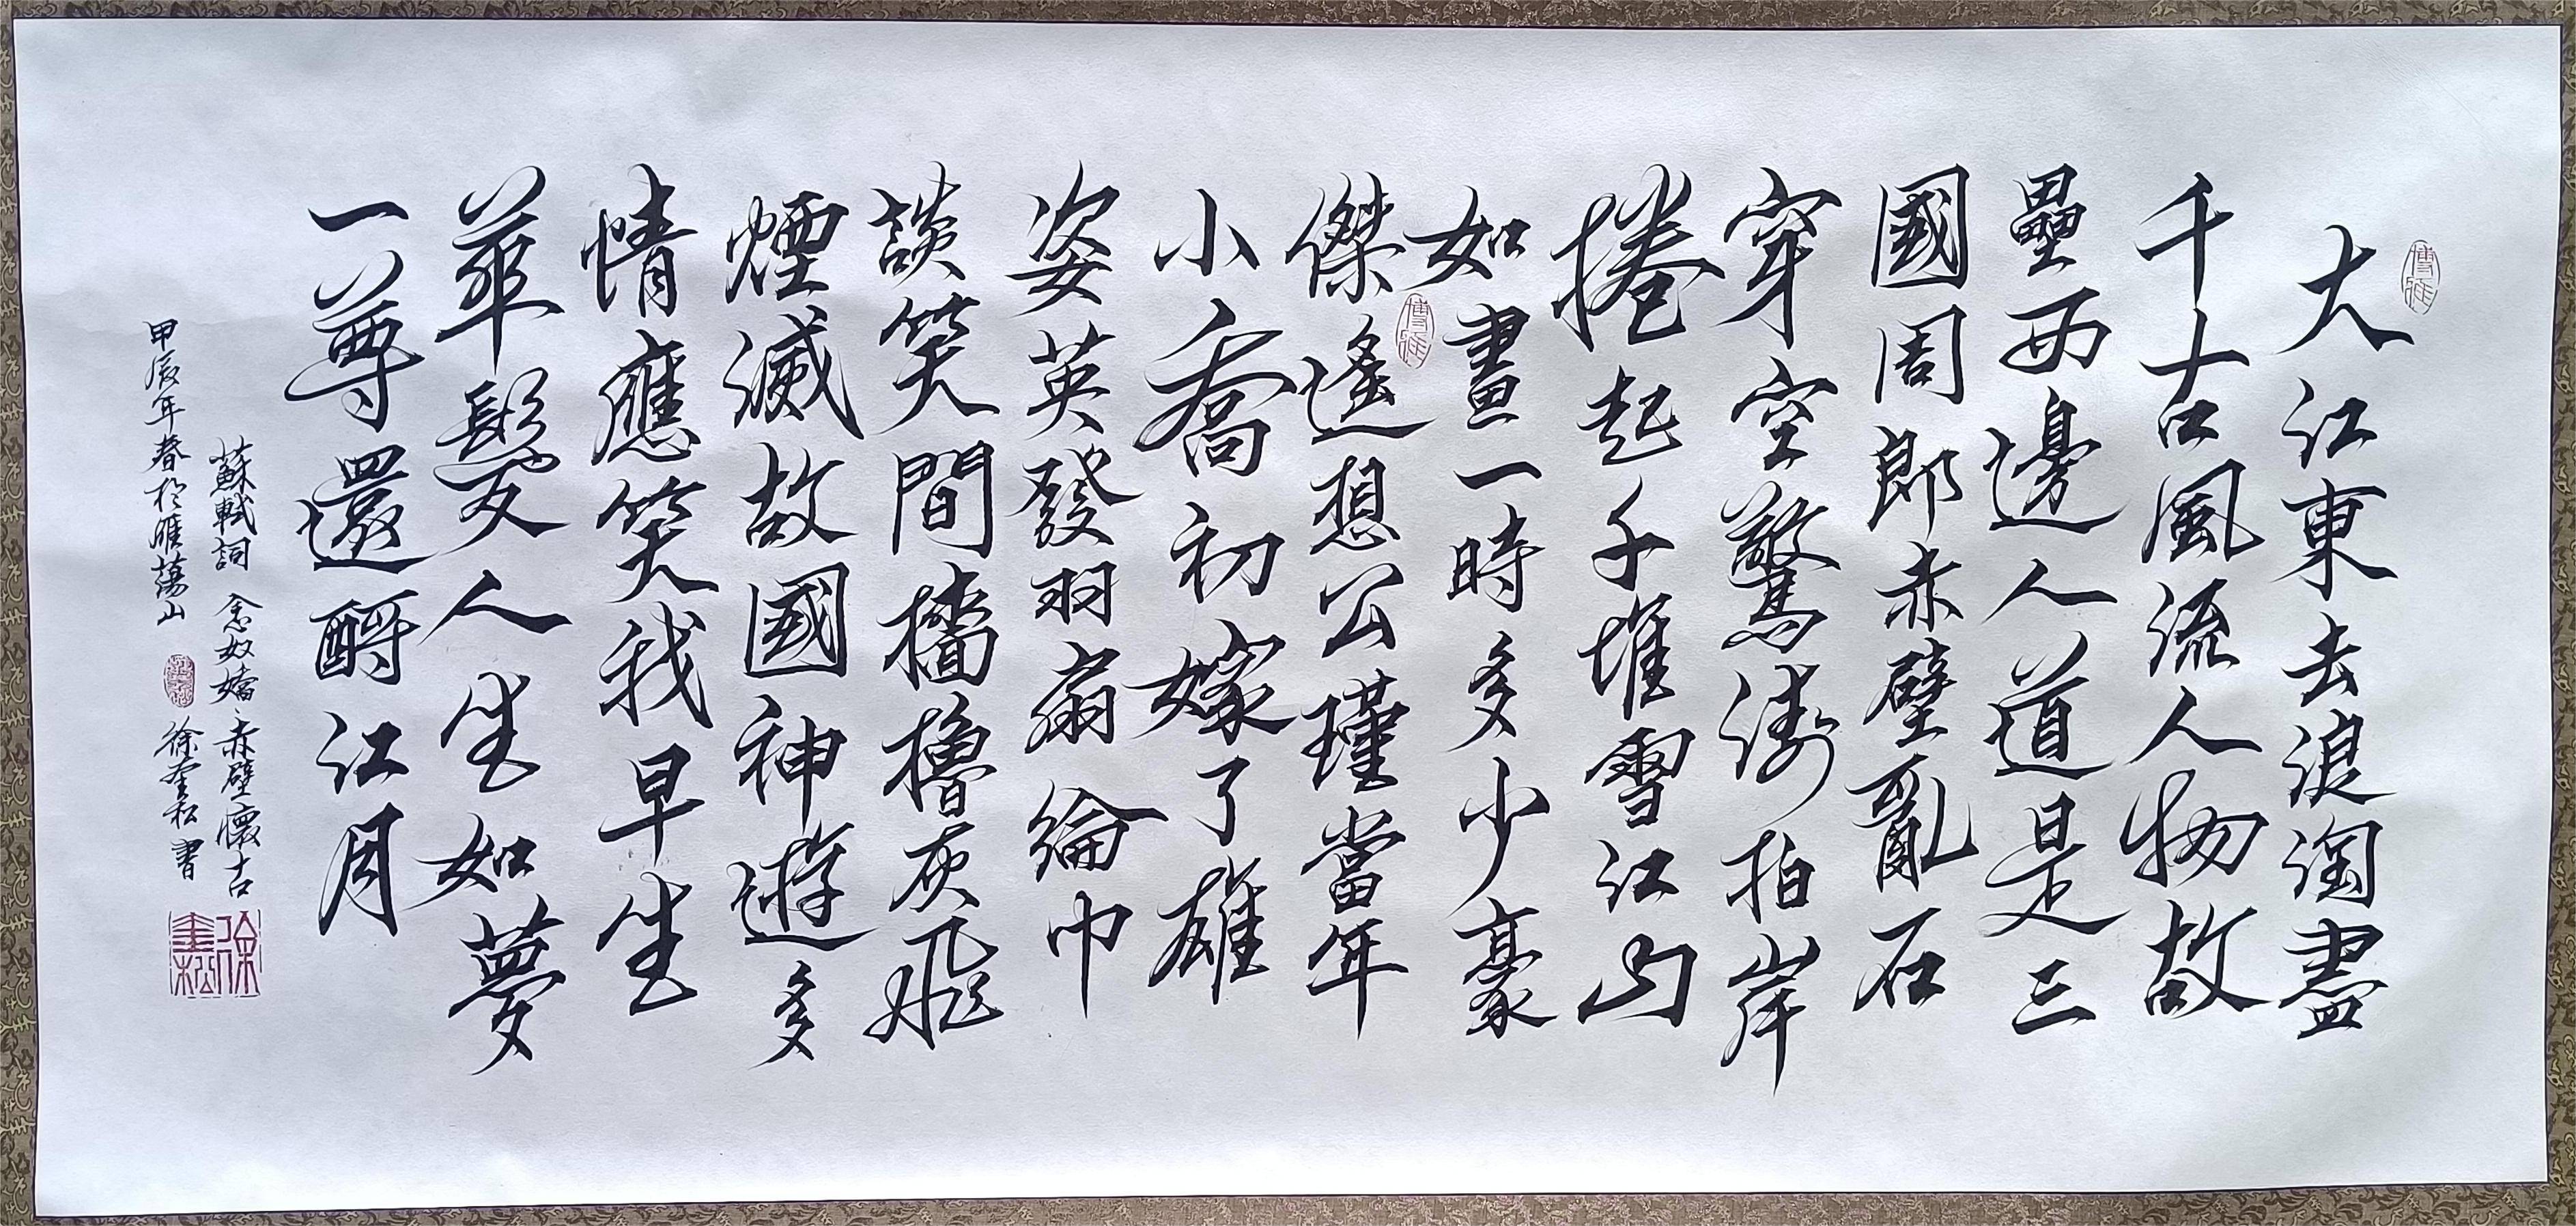 博雅
大江東去浪淘盡
千古風流人物故
壘西邊人道是三
國周郎赤壁亂石
穿空驚濤拍岸
捲起千堆雪江山
如畫一時多少豪
博雅
傑遙想公瑾當年
小喬初嫁了雄
姿英發羽扇綸巾
談笑間檣櫓灰飛
煙滅故國神遊多
情應笑我早生
華髮人生如夢
一尊還酹江月
蘇軾詞 念奴嬌·赤壁懷古
甲辰年春於雁蕩山 徐奎松書
徐奎松